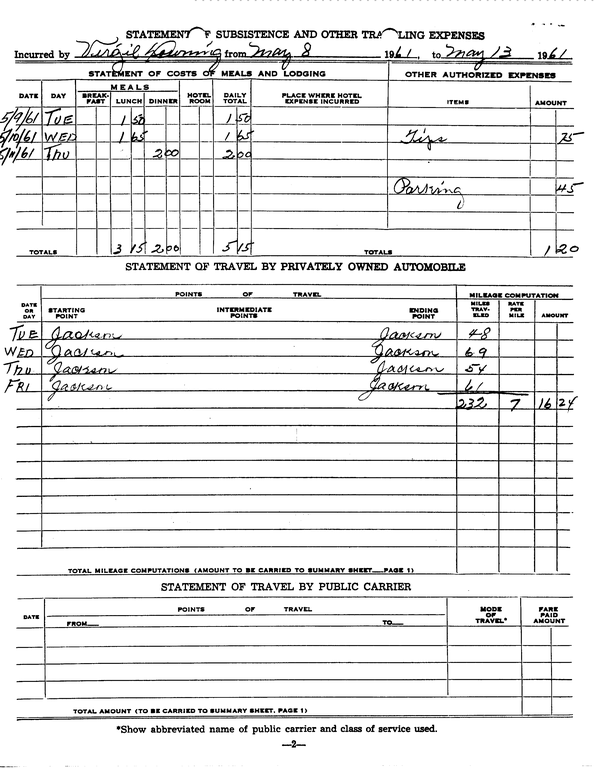 STATEMENT F SUBSISTENCE AND OTHER TRA LING EXPENSES
Incurred by Virgil Downing from May 8 1961, to May 13 1961
STATEMENT OF COSTS OF MEALS AND LODGING OTHER AUTHORIZED EXPENSES
DATE DAY MEALS BREAK-FAST LUNCH DINNER HOTEL ROOM DAILY TOTAL PLACE WHERE HOTEL EXPENSE INCURRED ITEMS AMOUNT
5/9/61 TUE 1 50 1 50
5/10/61 WED 1 65 1 65 Tips 75
5/11/61 THU 2 00 2 00
Parking 45
TOTALS 3 15 2 00 5 15 TOTALS 1 20
STATEMENT OF TRAVEL BY PRIVATELY OWNED AUTOMOBILE
POINTS OF TRAVEL MILEAGE COMPUTATION
DATE OR DAY STARTING POINT INTERMEDIATE POINTS ENDING POINT MILES TRAV-ELED RATE PER MILE AMOUNT
TUE Jackson Jackson 48
WED Jackson Jackson 69
THU Jackson Jackson 54
FRI Jackson Jackson 61
232 7 16 24
TOTAL MILEAGE COMPUTATIONS (AMOUNT TO BE CARRIED TO SUMMARY SHEET PAGE 1)
STATEMENT OF TRAVEL BY PUBLIC CARRIER
DATE POINTS OF TRAVEL MODE OF TRAVEL* FARE PAID AMOUNT
FROM TO
TOTAL AMOUNT (TO BE CARRIED TO SUMMARY SHEET, PAGE 1)
*Show abbreviated name of public carrier and class of service used.
—2—